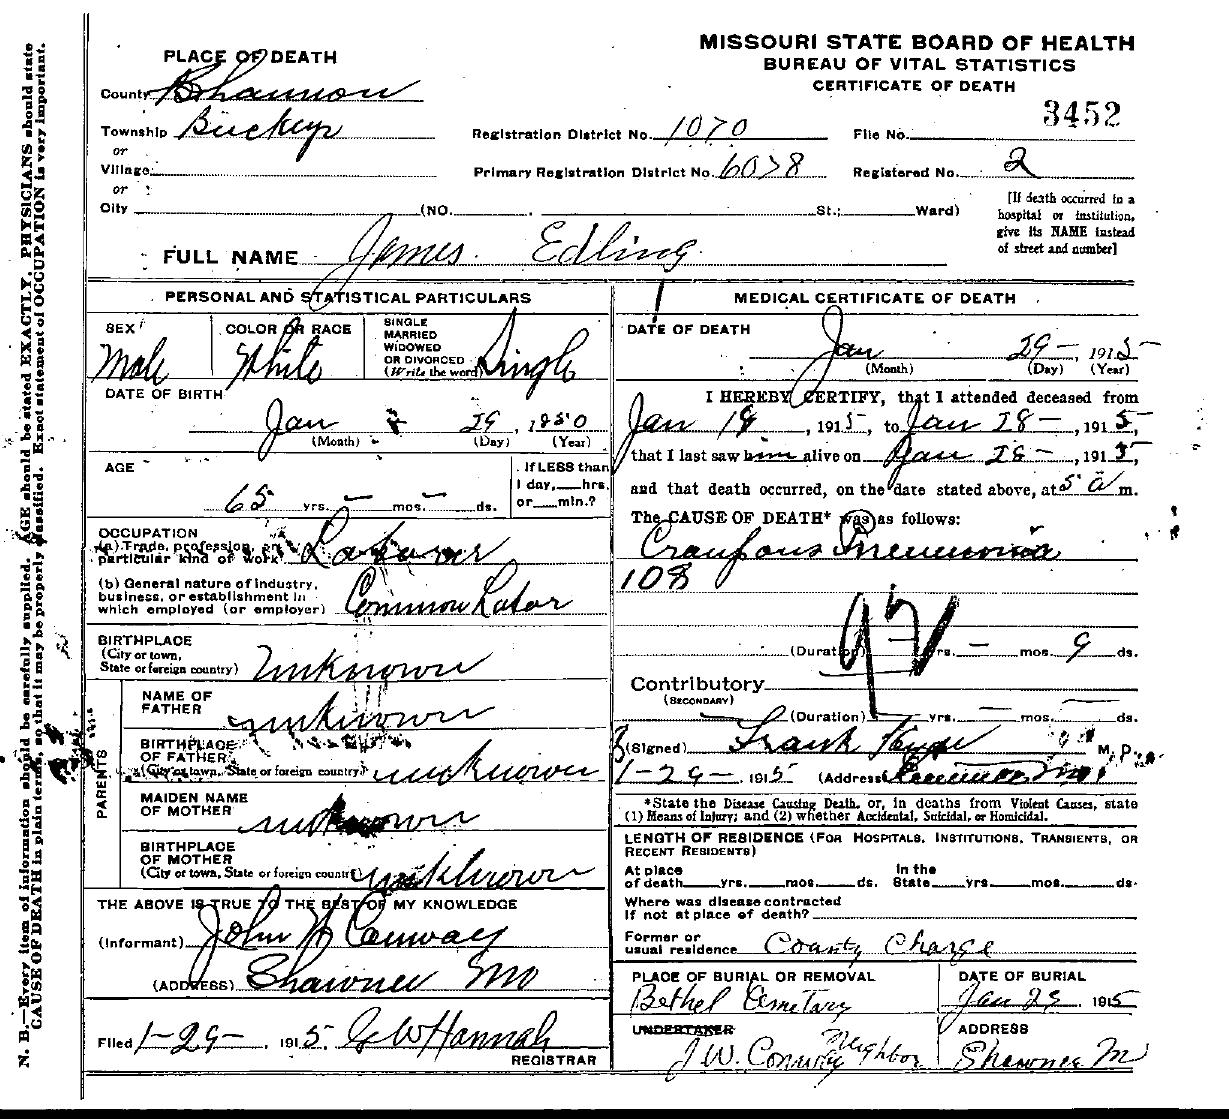 MISSOURI STATE BOARD OF HEALTH
BUREAU OF VITAL STATISTICS
CERTIFICATE OF DEATH
3452
PLACE OF DEATH
County Shannon
Township
or
Village
or
City (NO. St.; Ward)
Registration District No. 1070 File No.
Primary Registration District No. 6078 Registered No. 2
[If death occurred in a
hospital or institution,
give its NAME instead
of street and number]
FULL NAME James Edling
PERSONAL AND STATISTICAL PARTICULARS
SEX
Male
COLOR OR RACE
White
SINGLE
MARRIED
WIDOWED
OR DIVORCED
(Write the word) Single
DATE OF BIRTH
Jan 29, 1850
(Month) (Day) (Year)
AGE
65 yrs. – mos. – ds.
If LESS than
1 day, hrs.
or min.?
OCCUPATION
(a) Trade, profession, or
particular kind of work Laborer
(b) General nature of industry,
business, or establishment in
which employed (or employer) Common Labor
BIRTHPLACE
(City or town,
State or foreign country) unknown
PARENTS
NAME OF
FATHER unknown
BIRTHPLACE
OF FATHER
(City or town, State or foreign country) unknown
MAIDEN NAME
OF MOTHER unknown
BIRTHPLACE
OF MOTHER
(City or town, State or foreign country) unknown
THE ABOVE IS TRUE TO THE BEST OF MY KNOWLEDGE
(Informant) John W Conway
(ADDRESS) Shawnee Mo
Filed 1-29-, 1915. G W Hannah
REGISTRAR
MEDICAL CERTIFICATE OF DEATH
DATE OF DEATH
Jan 29 –, 1915
(Month) (Day) (Year)
I HEREBY CERTIFY, that I attended deceased from
Jan 19, 1915, to Jan 28 –, 1915,
that I last saw him alive on Jan 28 –, 1915,
and that death occurred, on the date stated above, at 5 a m.
The CAUSE OF DEATH* was as follows:
Croupous Pneumonia
108
92
(Duration) yrs. – mos. 9 ds.
Contributory
(SECONDARY)
(Duration) yrs. mos. ds.
(Signed) Frank Hyde M. D.
1-29-, 1915 (Address) Eminence Mo.
*State the Disease Causing Death, or, in deaths from Violent Causes, state
(1) Means of Injury; and (2) whether Accidental, Suicidal, or Homicidal.
LENGTH OF RESIDENCE (FOR HOSPITALS, INSTITUTIONS, TRANSIENTS, OR
RECENT RESIDENTS)
At place
of death yrs. mos. ds.
In the
State yrs. mos. ds.
Where was disease contracted
If not at place of death?
Former or
usual residence County Charge
PLACE OF BURIAL OR REMOVAL
Bethel Cemetary
DATE OF BURIAL
Jan 29, 1915
UNDERTAKER
J.W. Conway Neighbor
ADDRESS
Shawnee M
N. B.—Every item of information should be carefully supplied. AGE should be stated EXACTLY. PHYSICIANS should state
CAUSE OF DEATH in plain terms, so that it may be properly classified. Exact statement of OCCUPATION is very important.